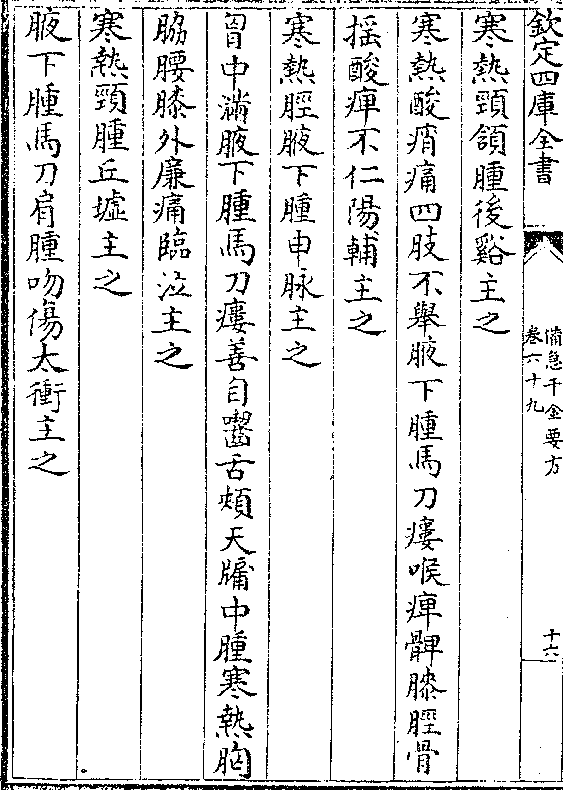 欽定四庫全書
備急千金要方
卷六十九
十六
寒熱頸頷腫後谿主之
寒熱酸痟痛四肢不舉腋下腫馬刀瘻喉痺髀膝脛骨
揺酸痺不仁陽輔主之
寒熱脛腋下腫申脉主之
胷中滿腋下腫馬刀瘻善自齧舌頰天牖中腫寒熱胸
脇腰膝外廉痛臨泣主之
寒熱頸腫丘墟主之
腋下腫馬刀肩腫吻傷太衝主之